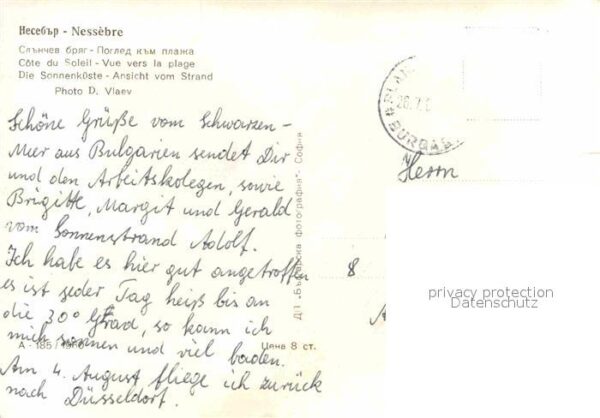 Несебър - Nessèbre
Слънчев бряг - Поглед към плажа
Côte du Soleil - Vue vers la plage
Die Sonnenküste - Ansicht vom Strand
Photo D. Vlaev
Schöne Grüße vom Schwarzen-
Meer aus Bulgarien sendet Dir
und den Arbeitskolegen, sowie
Brigitte, Margit und Gerald
vom Sonnenstrand Adolf.
Ich habe es hier gut angetroffen
es ist jeder Tag heiß bis an
die 30° Grad, so kann ich
mich sonnen und viel baden.
Am 4. August fliege ich zurück
nach Düsseldorf.
А - 185/1960
Цена 8 ст.
ДП „Българска фотография“ - София
BURGAS
Herrn
8
privacy protection
Datenschutz